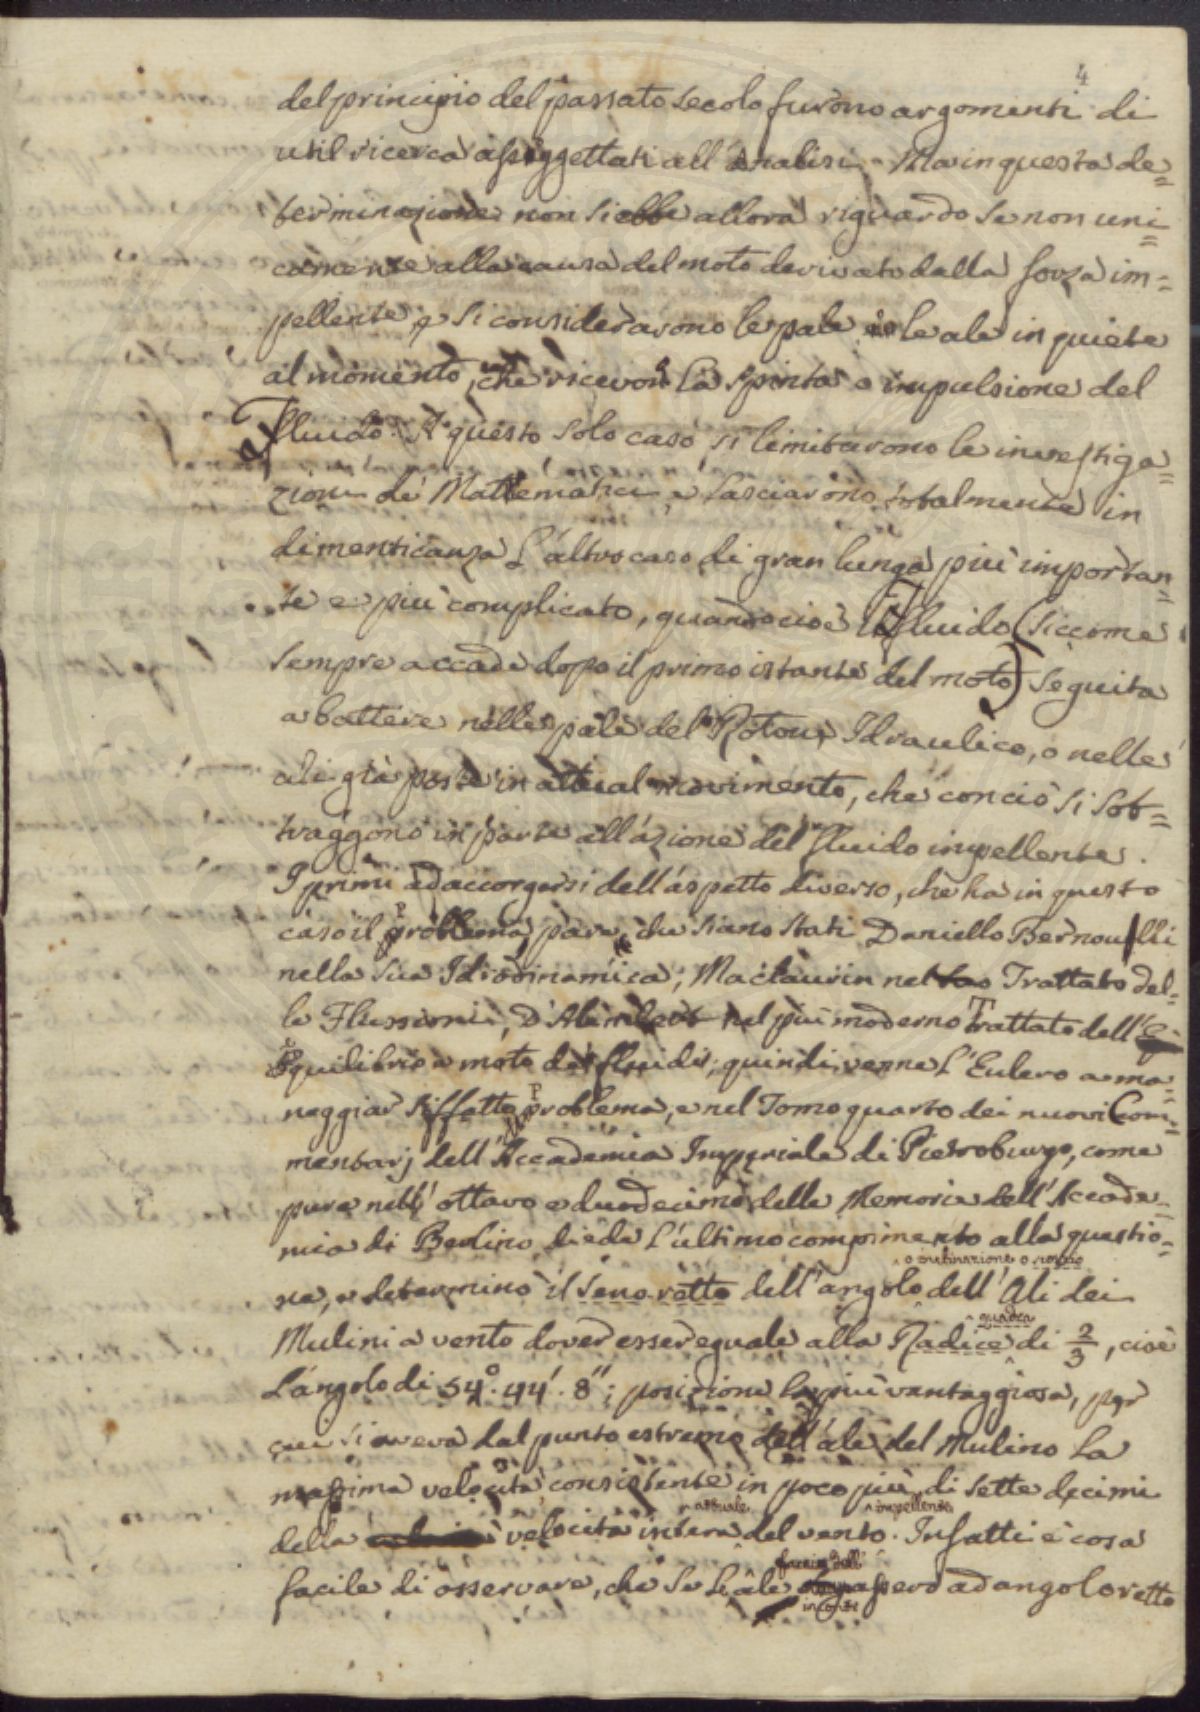 4
del principio del passato secolo furono argomenti di
util ricerca assoggettati all'Analisi. Ma in questa de=
terminazione non si ebbe allora riguardo se non uni=
camente alla causa del moto derivato dalla forza im=
pellente, e si considerarono le pale o le ale in quiete
al momento, che ricevono la spinta o impulsione del
Fluido. A questo solo caso si limitarono le investiga=
zioni de' Mattematici, e lasciarono totalmente in
dimenticanza l'altro caso di gran lunga più importan=
te e più complicato, quando cioè il Fluido (siccome
sempre accade dopo il primo istante del moto) seguita
a battere nelle pale del Rotone Idraulico, o nelle
ali già poste in attual movimento, che con ciò si sot=
traggono in parte all'azione del fluido impellente.
I primi ad accorgersi dell'aspetto diverso, che ha in questo
caso il Problema, pare, che siano stati Daniello Bernoulli
nella sua Idrodinamica; Maclaurin nel suo Trattato del=
le Flussioni, D'Alembert nel più moderno Trattato dell'E=
quilibrio e moto de' fluidi; quindi venne l'Eulero a ma=
neggiar siffatto Problema, e nel Tomo quarto dei nuovi Com=
mentarj dell'Accademia Imperiale di Pietroburgo, come
pure nell'ottavo e duodecimo delle Memorie dell'Accade=
mia di Berlino diede l'ultimo compimento alla questio=
o inclinazione o
ne, e determinò il seno retto dell'angolo dell'Ali dei
quadra
Mulini a vento dover esser eguale alla Radice di 2/3, cioè
L'angolo di 54°. 44'. 8"; posizione la più vantaggiosa, per
cui si aveva dal punto estremo dell'ale del Mulino la
massima velocità consistente in poco più di sette decimi
attuale impellente
della velocità intera del vento. Infatti è cosa
faccia dell'
facile di osservare, che se l'ale assero ad angolo retto